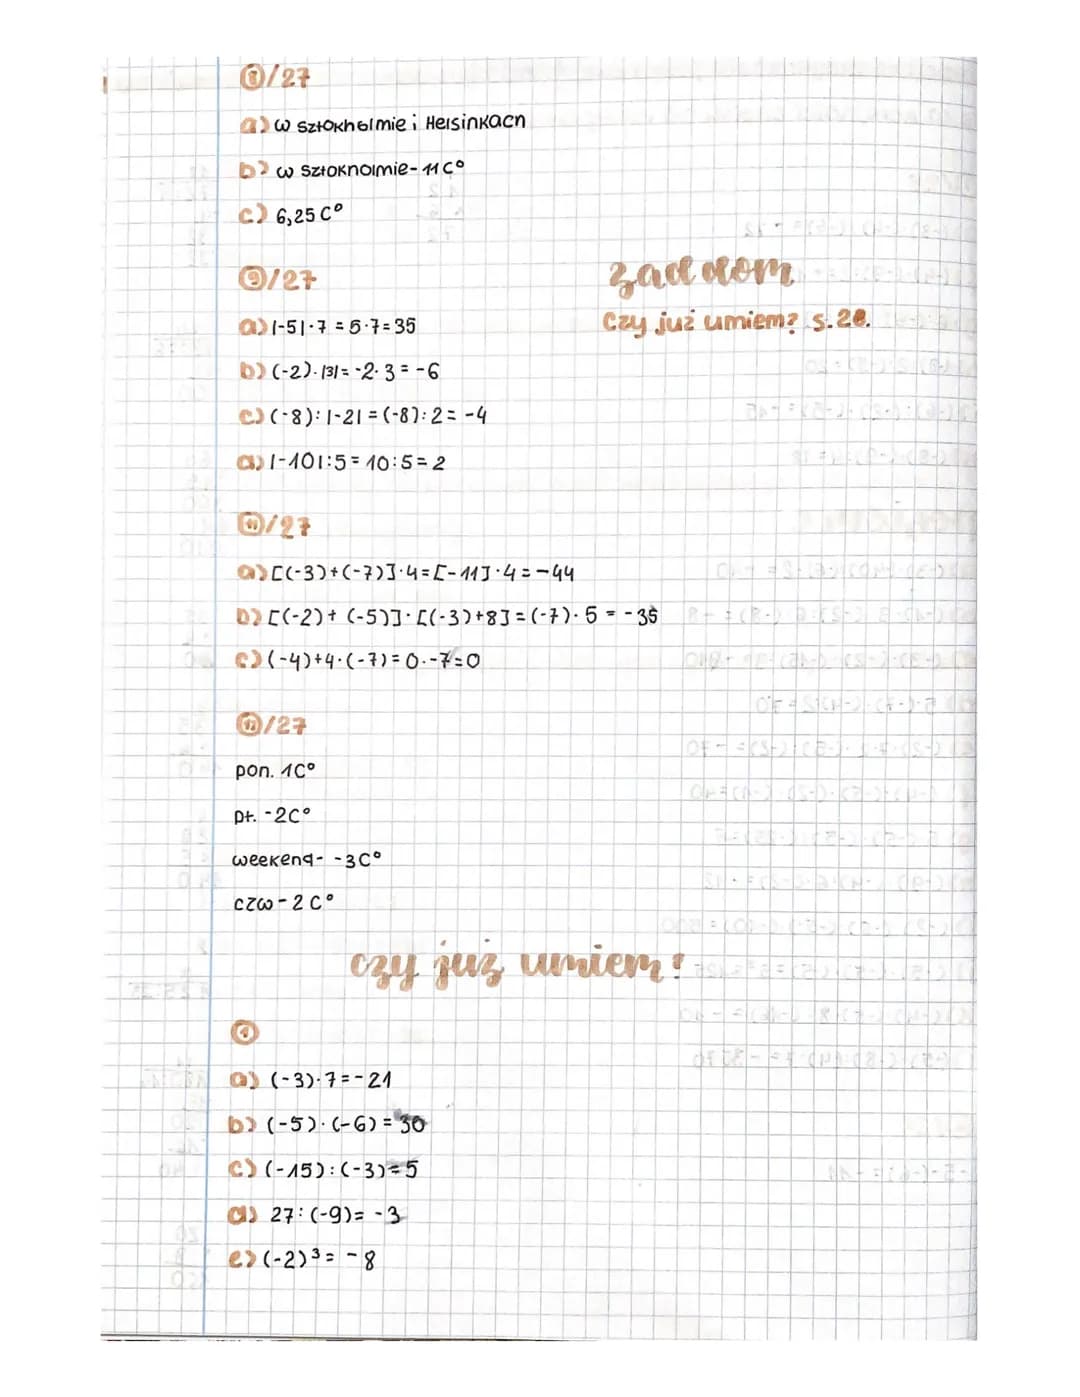 8/27
a) w Sztokholmie i Helsinkach
b) w Sztokholmie - 11 C°
c) 6,25 C°
9/27
zad dom
Czy już umiem? s.28.
a) |-5| · 7 = 5 · 7 = 35
b) (-2) · |3| = -2 · 3 = -6
c) (-8) : |-2| = (-8) : 2 = -4
d) |-10| : 5 = 10 : 5 = 2
11/27
a) [(-3)+(-7)] · 4 = [-11] · 4 = -44
b) [(-2)+ (-5)] · [(-3)+8] = (-7) · 5 = -35
c) (-4)+4 · (-7) = 0 · -7 = 0
12/27
pon. 1C°
pt. -2C°
weekend - -3C°
czw - 2 C°
czy już umiem?
1
a) (-3) · 7 = -21
b) (-5) · (-6) = 30
c) (-15) : (-3) = 5
d) 27 : (-9) = -3
e) (-2)³ = -8